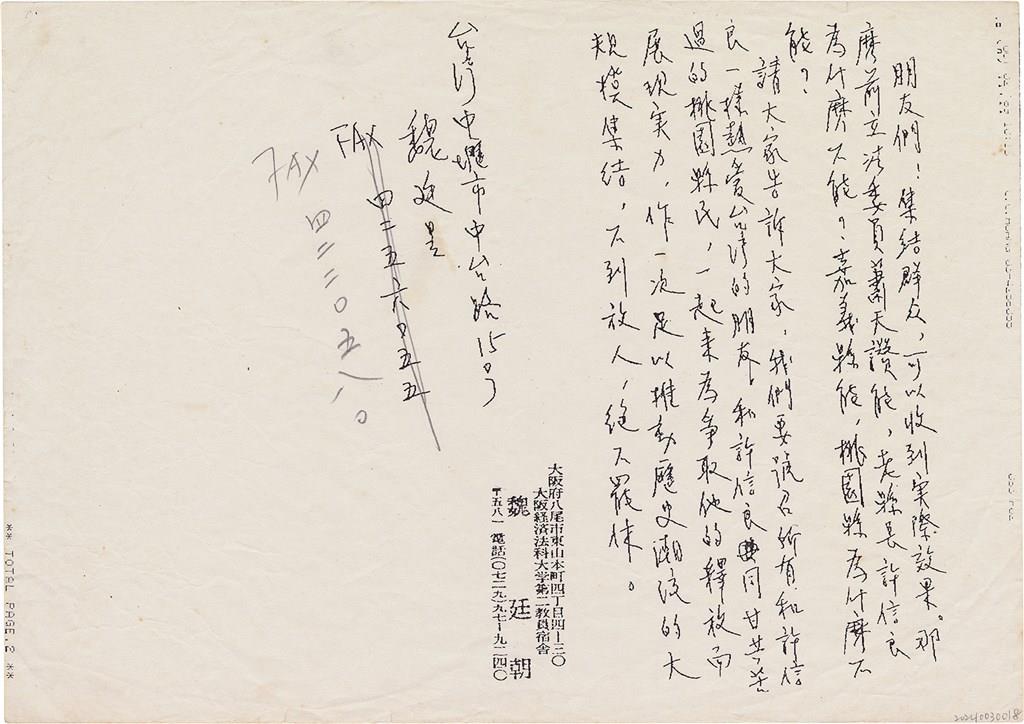 朋友們！集結群众，可以收到実際效果。那
麽前立法委員蕭天讚能，老縣長許信良
為什麽不能？嘉義縣能，桃園縣為什麽不
能？
請大家告訴大家，我們要號召所有和許信
良一樣熱爱台湾的朋友，和許信良同甘共苦
過的桃園縣民，一起来為争取他的釋放而
展現实力，作一次足以推動歷史潮流的大
規模集結，不到放人，絕不罷休。
台湾中壢市中台路15号
魏廷昱
FAX 四二五六〇五五
FAX 四二二〇五八〇
大阪府八尾市東山本町四丁目四ー三〇
大阪経済法科大学第二教員宿舎
魏廷朝
〒五八一 電話(〇七二九)九七ー九二四〇
** TOTAL PAGE.2 **
20240030018